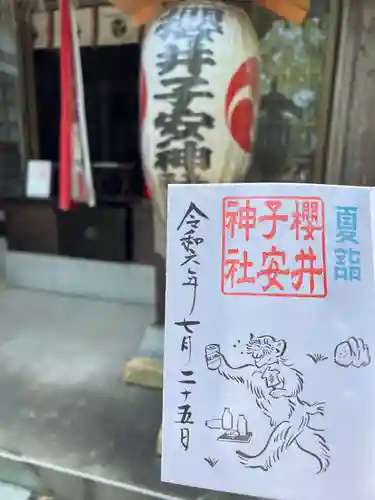 櫻井子安神社
夏詣
櫻井
子安
神社
令和六年 七月二十五日